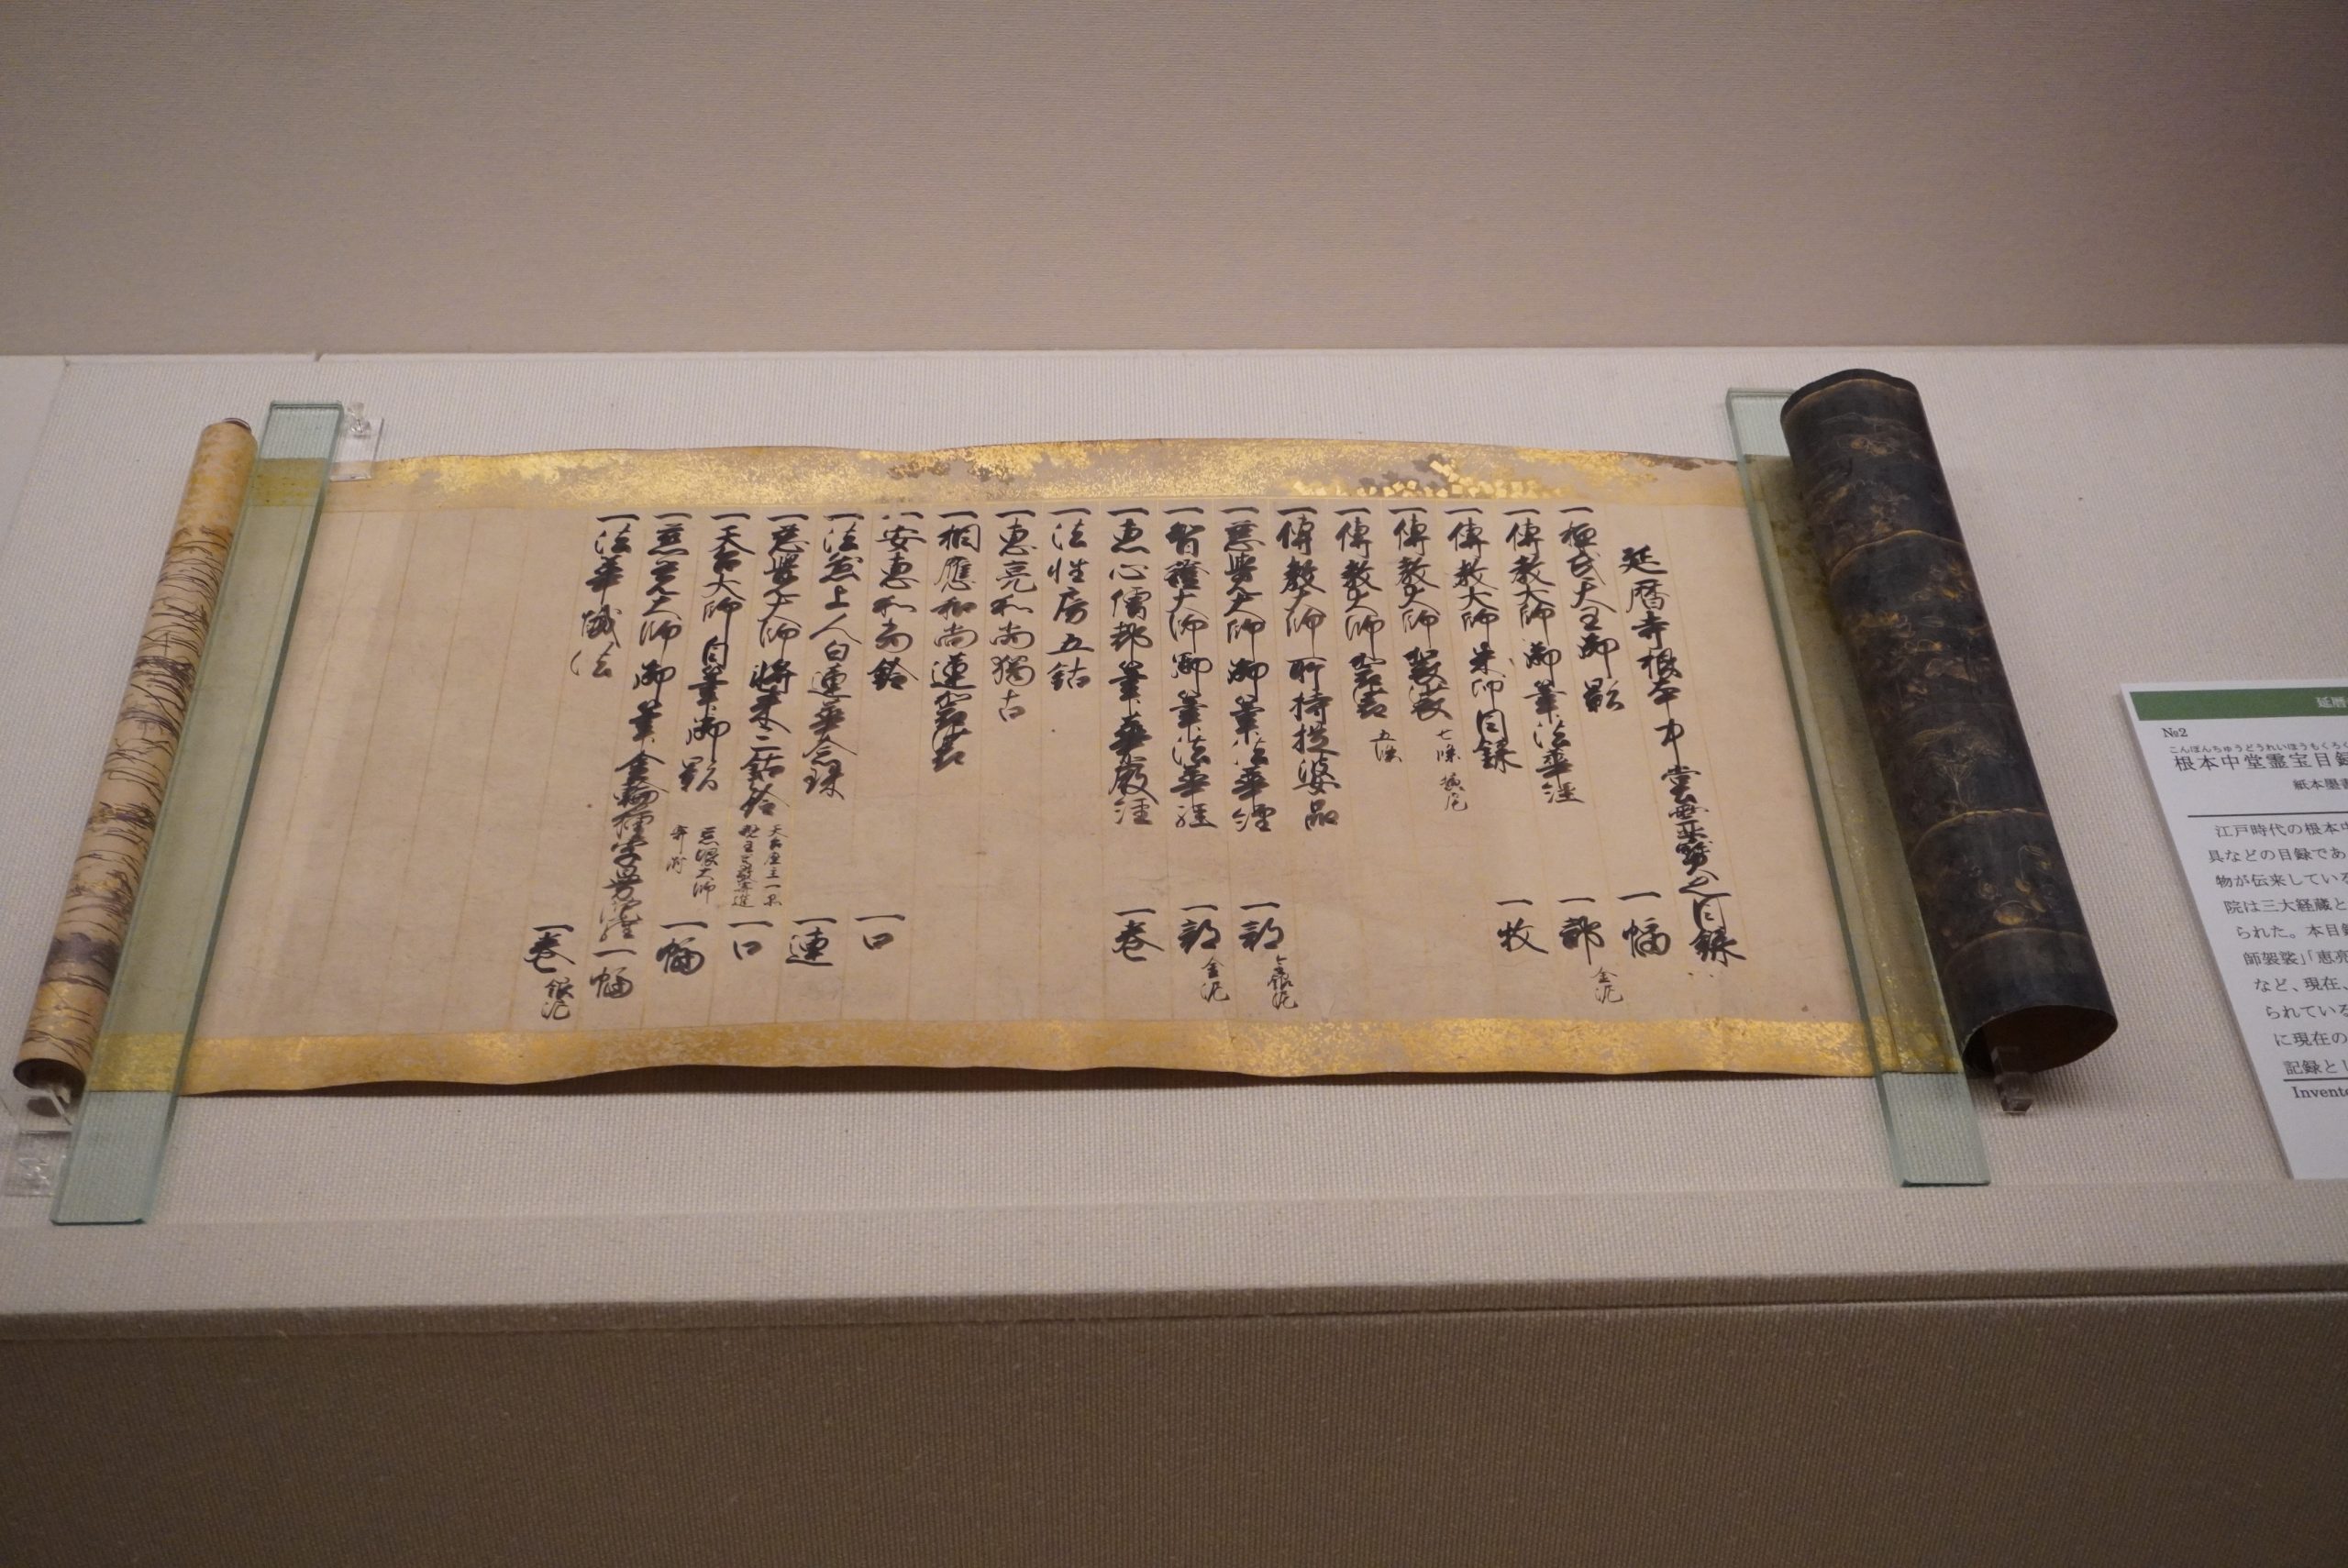 延暦寺根本中堂霊宝之目録
一桓武天王御影 一幅
一傳教大師御筆法華経 一部 金泥
一傳教大師来師目録 一枚
一傳教大師袈裟 七條
一傳教大師袈裟 五條
一傳教大師所持提婆品
一慈覺大師御筆法華経 一部 銀泥
一智證大師御筆法華経 一部 金泥
一恵心僧都筆華嚴経 一巻
一法性房五鈷
一恵亮和尚獨古
一相應和尚連袈裟
一安恵和尚鈴 一口
一法然上人白連華念珠 一連
一慈覺大師将来三鈷鈴 一口
一天台大師自筆御影 慈眼大師寄附 一幅
一慈覚大師御筆金輪種字曼荼羅 一幅
一法華懺法 一巻 銀泥
延暦
№2
こんぽんちゅうどうれいほうもくろく
根本中堂霊宝目録
紙本墨書
江戸時代の根本中
具などの目録であ
物が伝来している
院は三大経蔵と
られた。本目録
師袈裟」「恵亮
など、現在、
られている
に現在の
記録とし
Invento